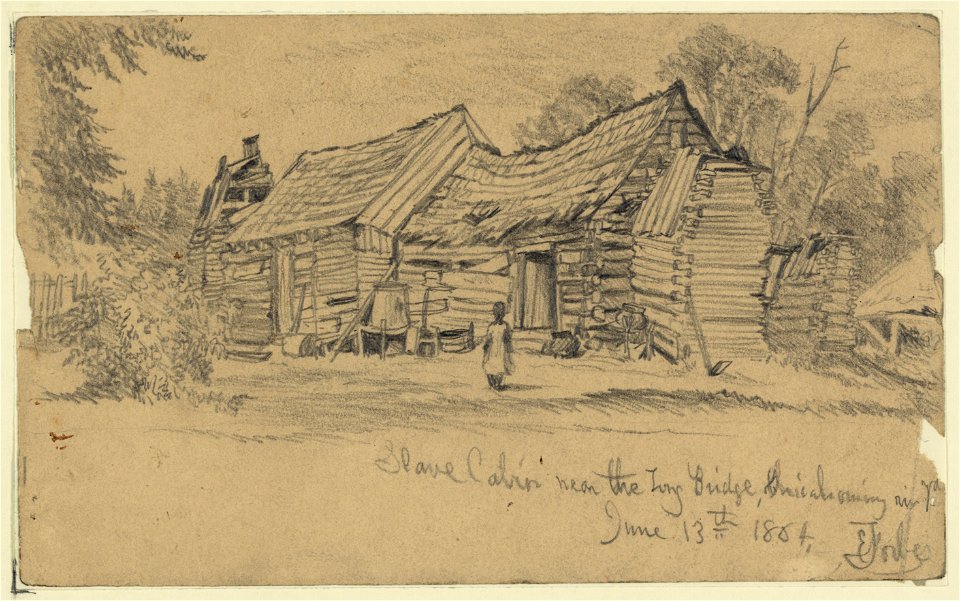 Slave Cabin near the Long Bridge, Chicahominy riv
June 13th 1864,
E Forbes